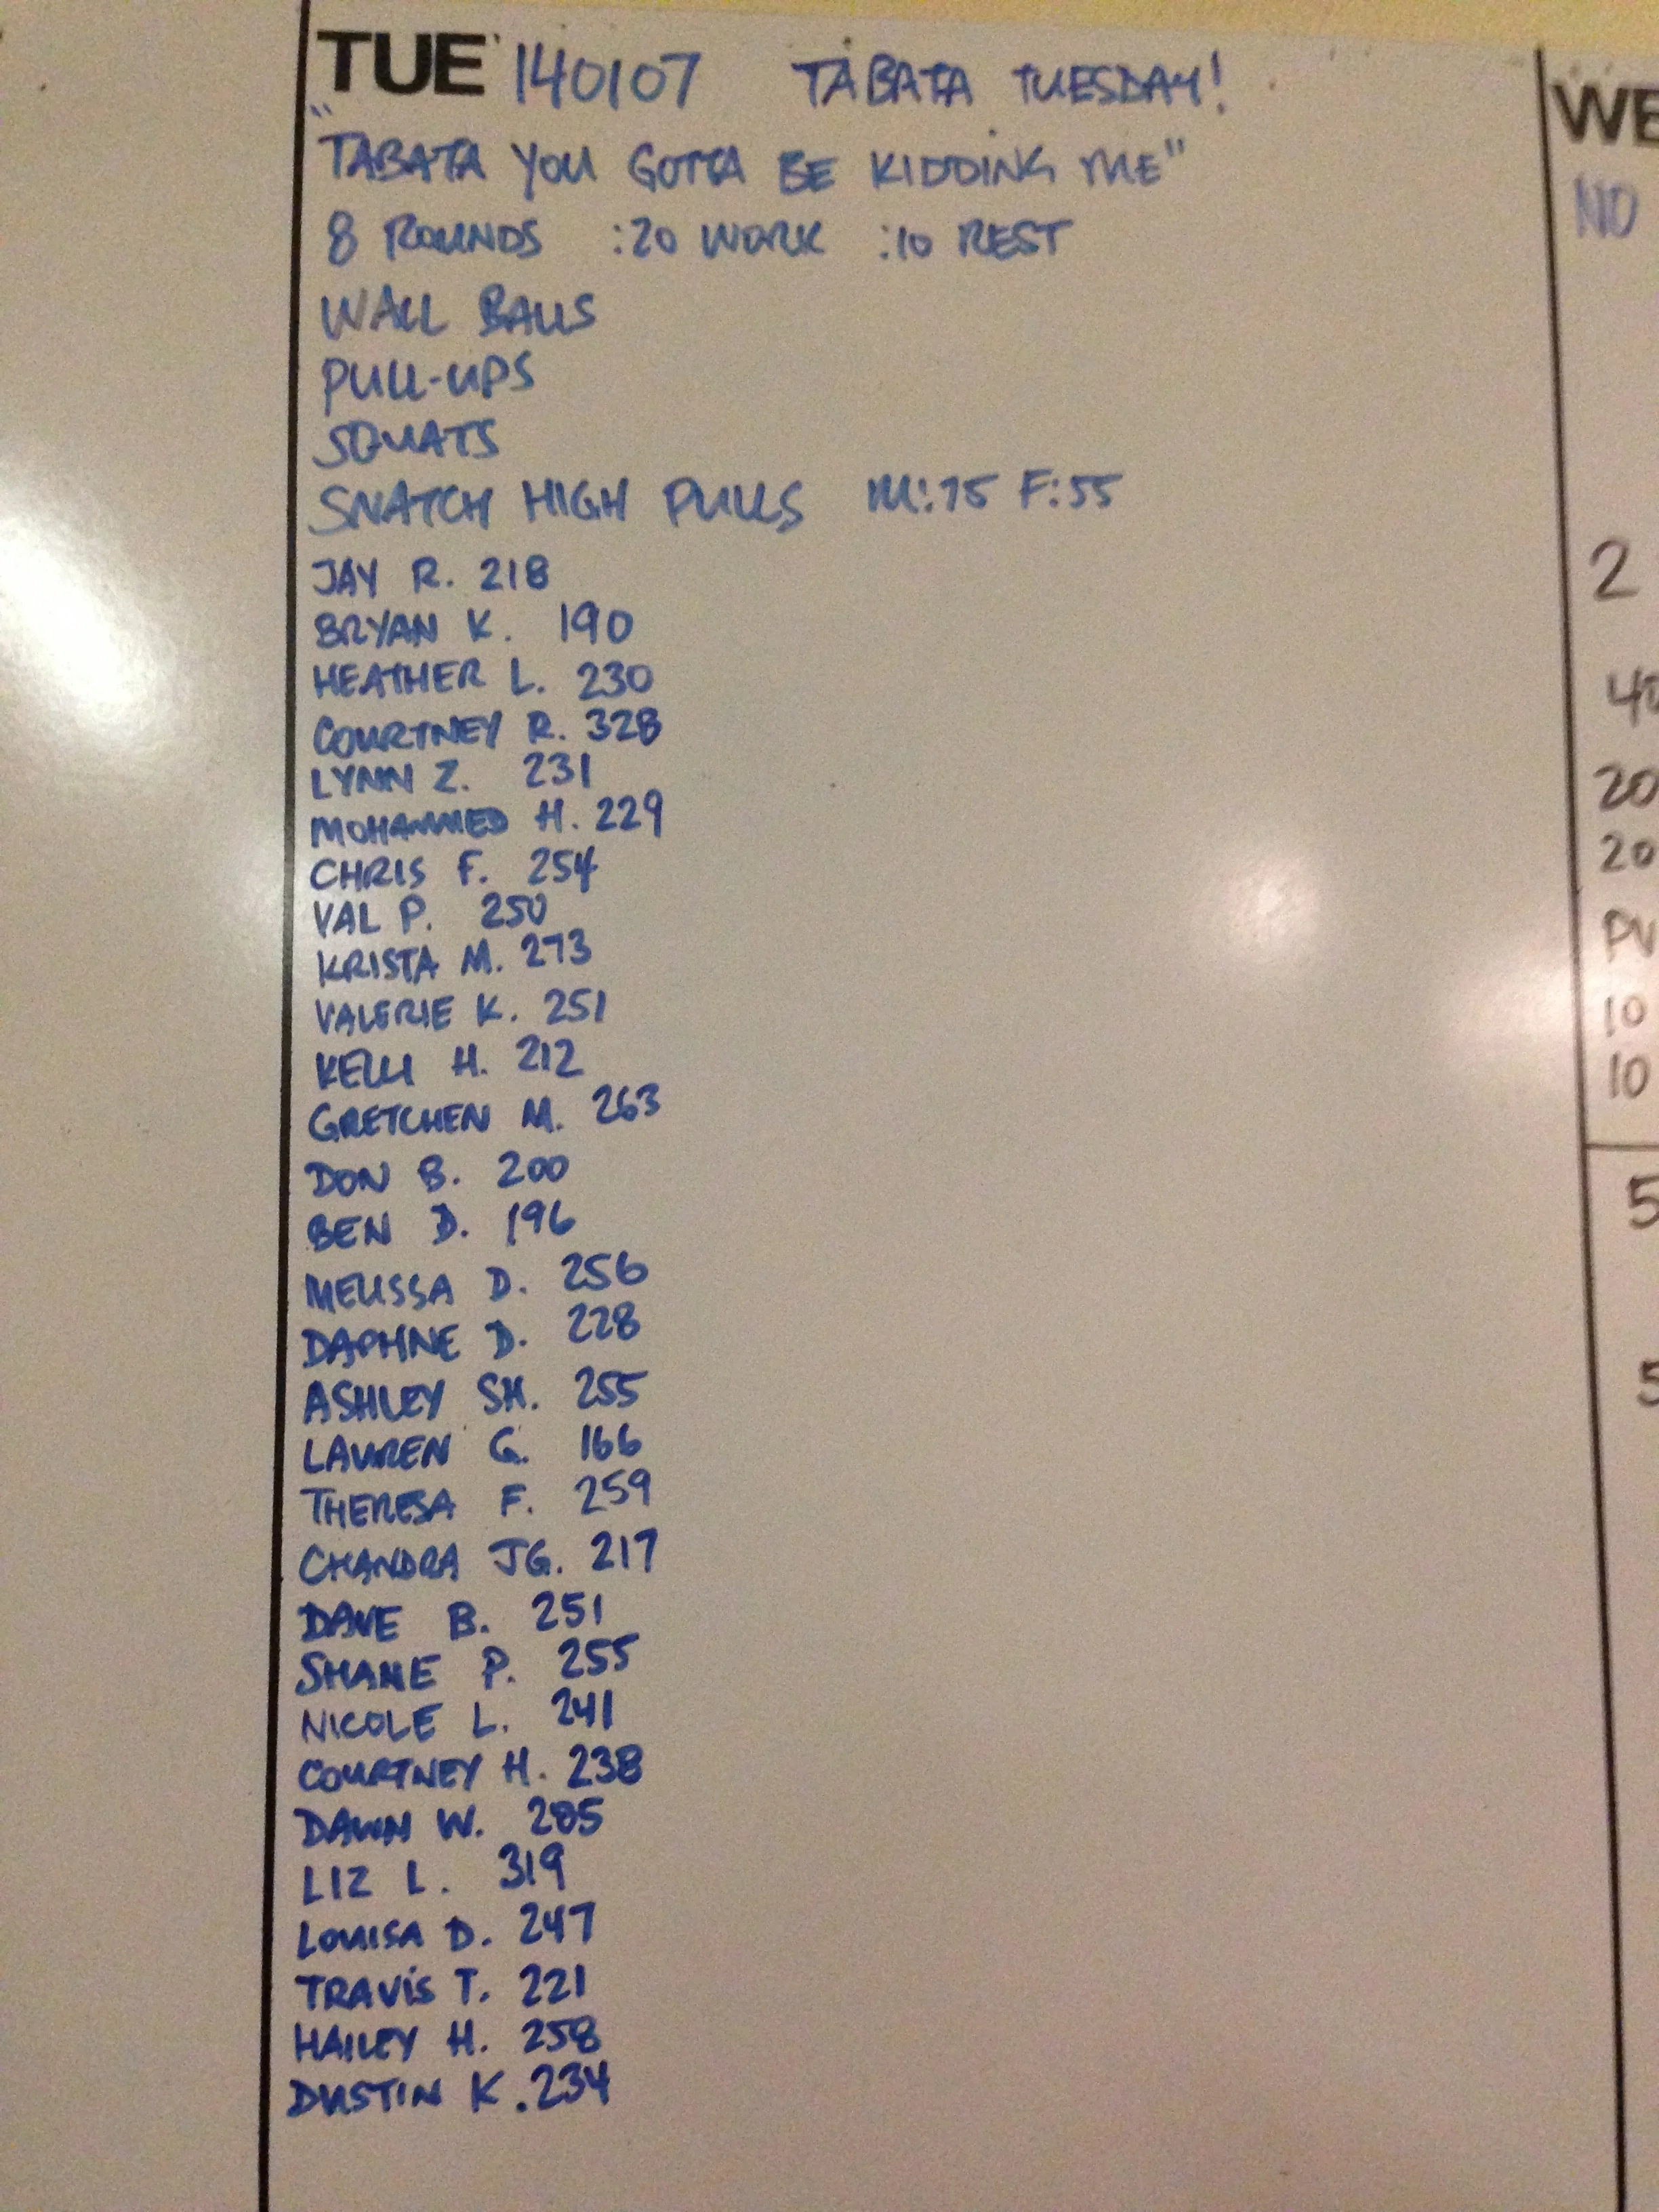 TUE 140107 TABATA TUESDAY!
"TABATA YOU GOTTA BE KIDDING ME"
8 ROUNDS :20 WORK :10 REST
WALL BALLS
PULL-UPS
SQUATS
SNATCH HIGH PULLS M:75 F:55
JAY R. 218
BRYAN K. 190
HEATHER L. 230
COURTNEY R. 328
LYNN Z. 231
MOHAMMED H. 229
CHRIS F. 254
VAL P. 250
KRISTA M. 273
VALERIE K. 251
KELLI H. 212
GRETCHEN M. 263
DON B. 200
BEN D. 196
MELISSA D. 256
DAPHNE D. 228
ASHLEY SH. 255
LAUREN G. 166
THERESA F. 259
CHANDRA JG. 217
DAVE B. 251
SHANE P. 255
NICOLE L. 241
COURTNEY H. 238
DAWN W. 285
LIZ L. 319
LOUISA D. 247
TRAVIS T. 221
HAILEY H. 258
DUSTIN K. 234
WE
NO
2
40
20
20
PU
10
10
5
5